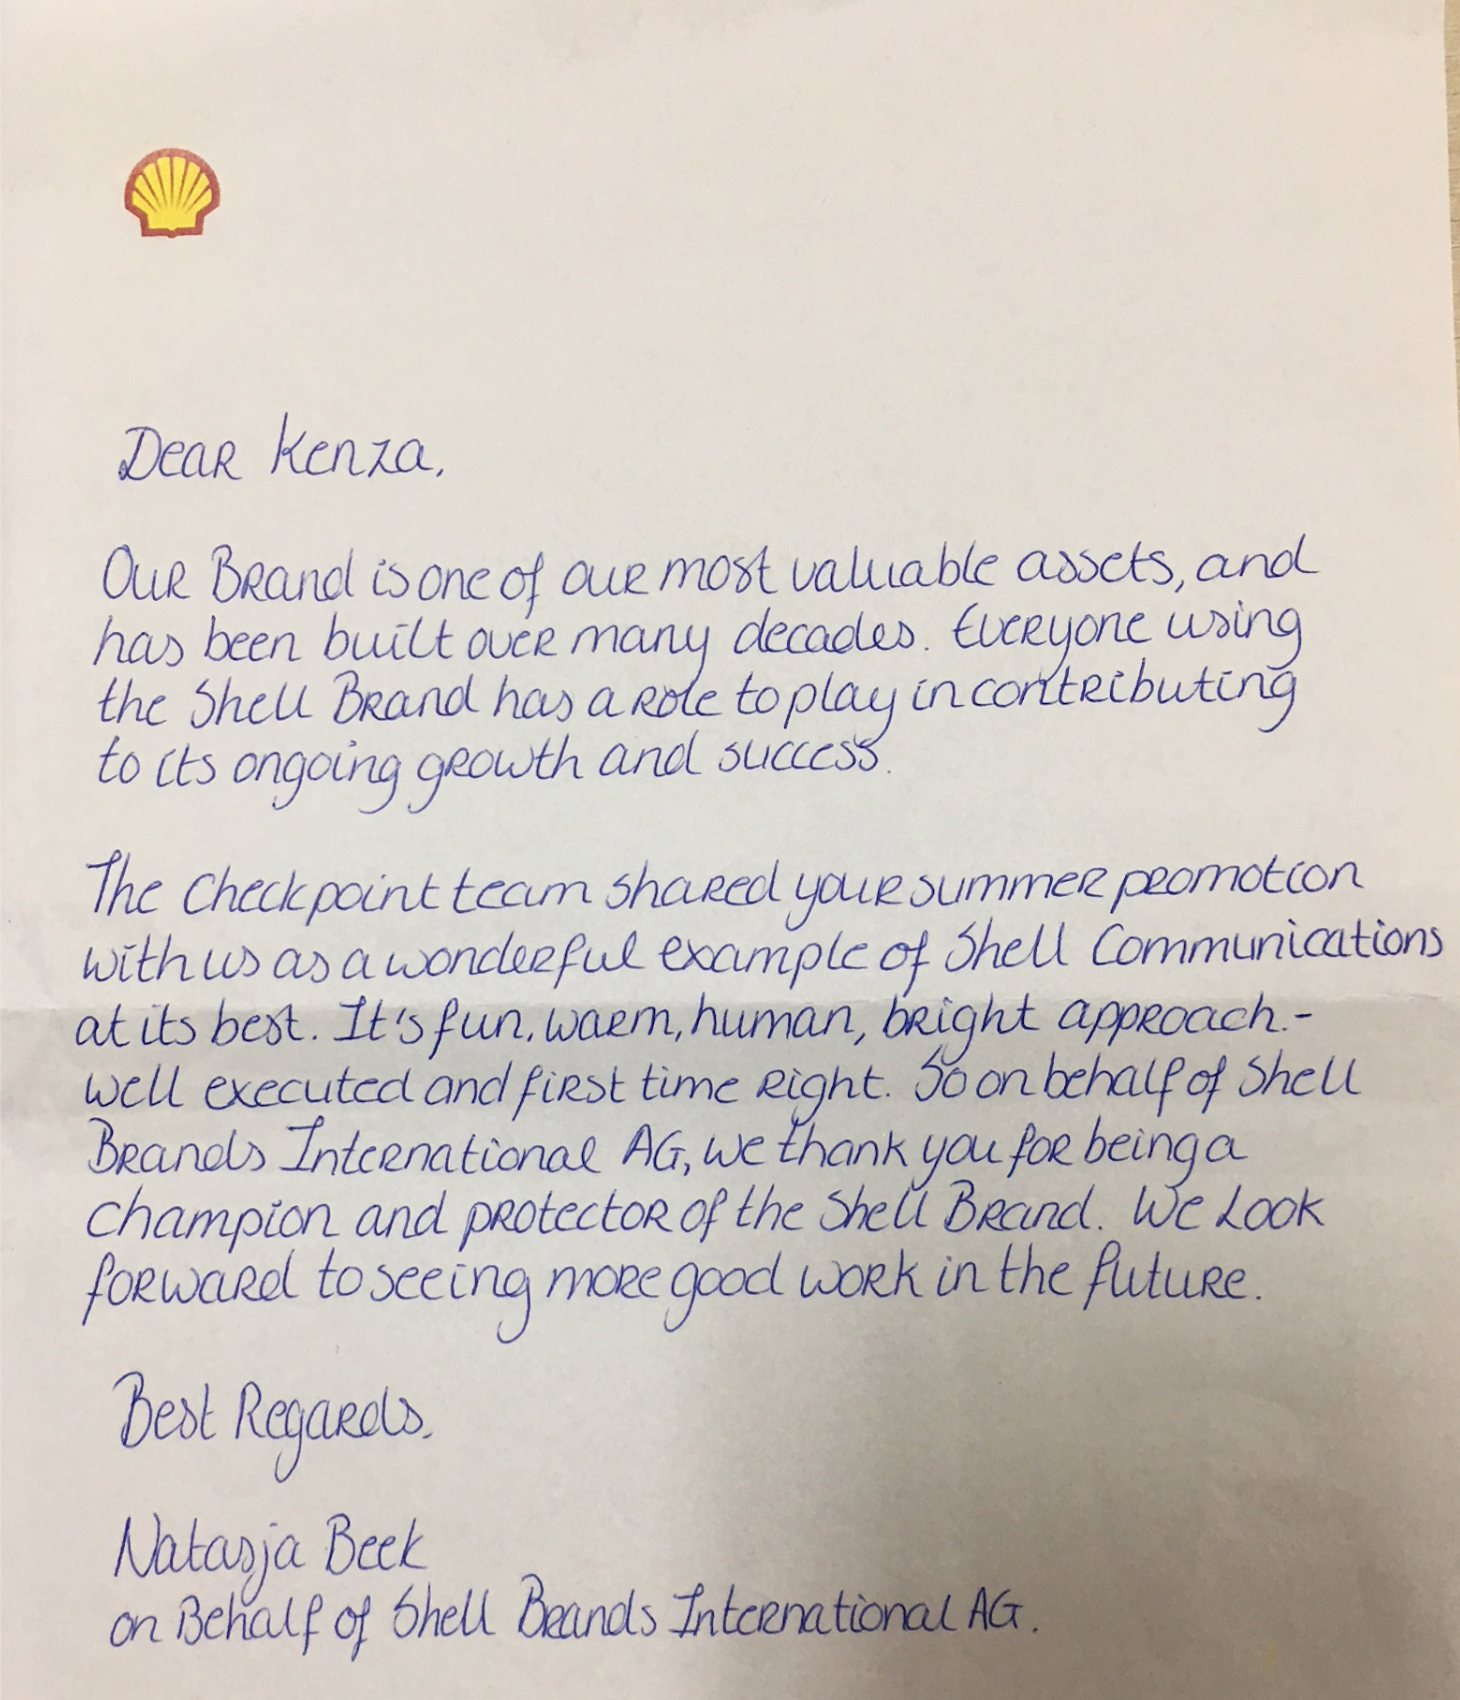 Dear Kenza,
Our Brand is one of our most valuable assets, and
has been built over many decades. Everyone using
the Shell Brand has a role to play in contributing
to its ongoing growth and success.
The Checkpoint team shared your summer promotion
with us as a wonderful example of Shell Communications
at its best. It's fun, warm, human, bright approach.-
well executed and first time right. So on behalf of Shell
Brands International AG, we thank you for being a
champion and protector of the Shell Brand. We Look
forward to seeing more good work in the future.
Best Regards.
Natasja Beek
on Behalf of Shell Brands International AG.